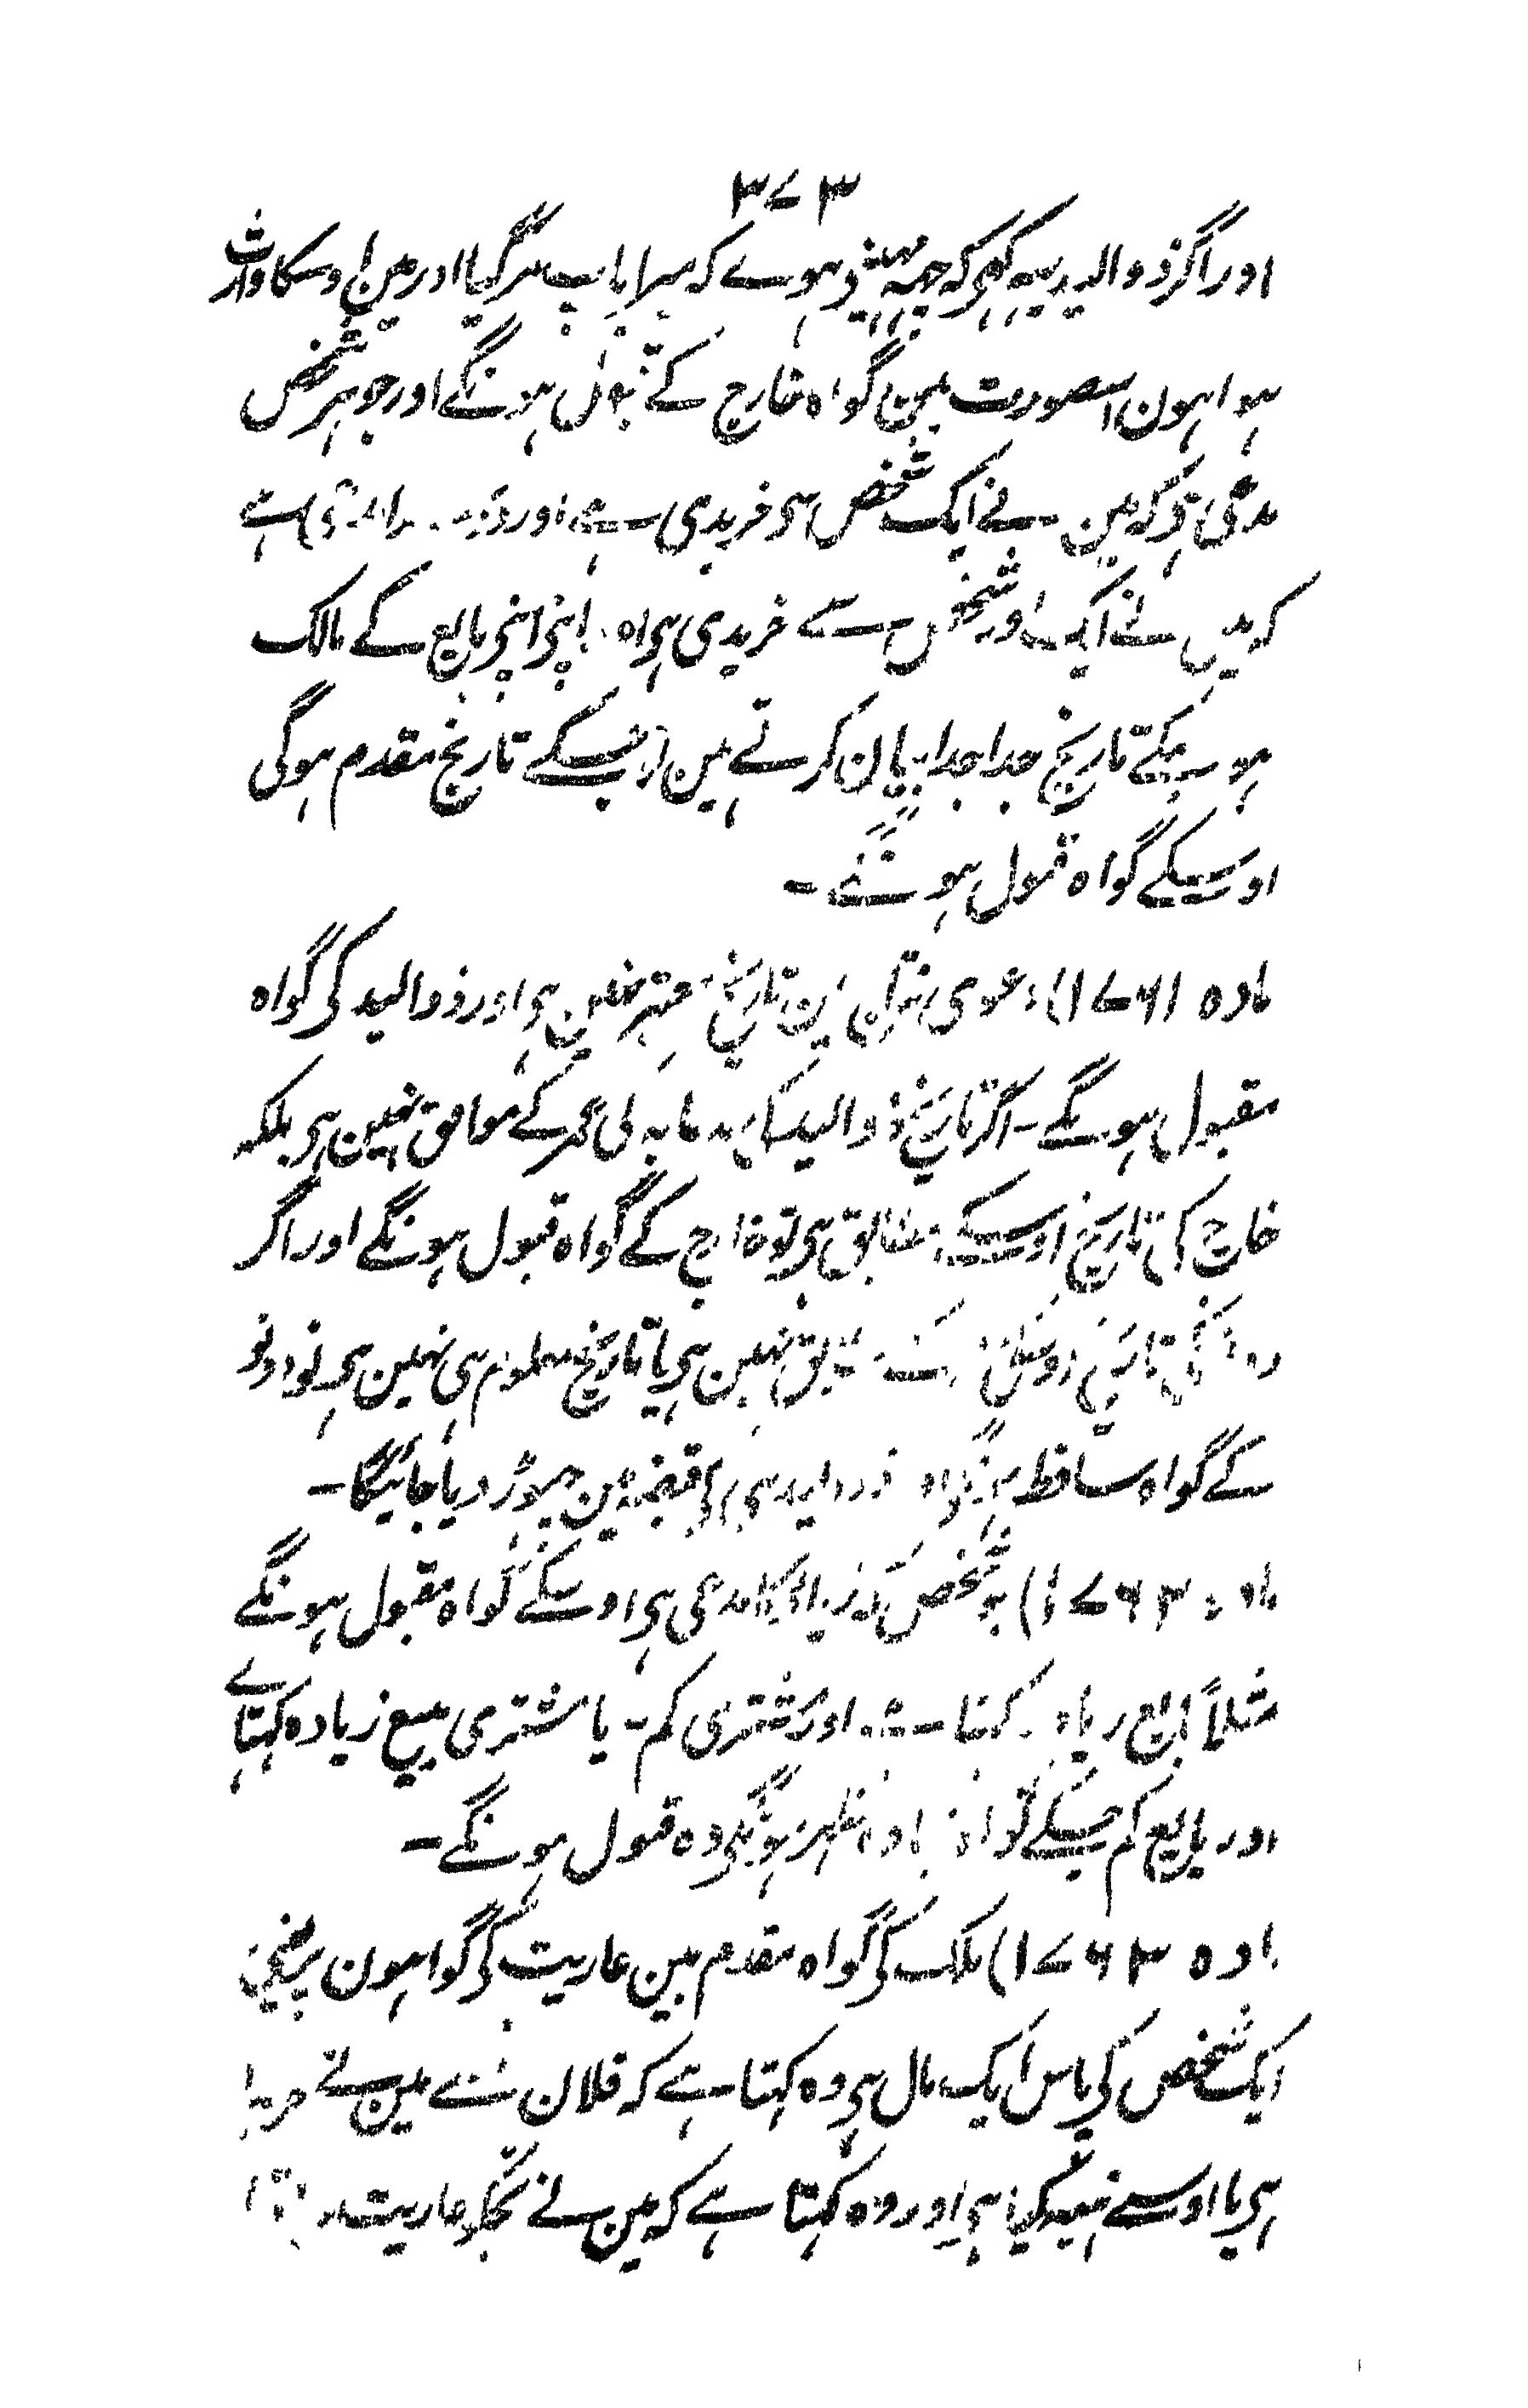 ۳۷۳
اور اگر ذوالید یہہ کہی کہ چہہ مہینے ہوے کہ میرا باپ مرگیا اور مین اوسکا وارث
ہوا ہون اسصورت مین گواہ خارج کے قبول ہونگے اور جو ہر شخص
مدعی ہی کہ مین نے ایک شخص سی خریدی ہے اور
کہ مین نے ایک اور شخص سے خریدی ہی اور اپنی اپنی بایع کے مالک
ہونیکے تاریخ جدا جدا بیان کرتے ہین تو جسکے تاریخ مقدم ہوگی
اوسیکے گواہ قبول ہونگے ـ
مادہ ۱۷۶۱) دعوی نتاج مین تاریخ معتبر نہین ہی اور ذوالید کی گواہ
مقبول ہونگے ـ اگر تاریخ ذوالید کی مدعا بہ کی عمر کے موافق نہین ہی بلکہ
خارج کی تاریخ اوسیکے مطابق ہی تو خارج کے گواہ قبول ہونگے اور اگر
دونوکی تاریخ نہین ہی یا تاریخ معلوم ہی نہین ہی تو دونو
کے گواہ ساقط ہونگی اور ذوالید ہی کی قبضہ مین چہوڑ دیا جائیگا ـ
۱۷۶۲) جو شخص کہ زیادتی کا مدعی ہی اوسکے گواہ مقبول ہونگے
مثلاً بایع زیادہ کہتا ہے اور مشتری کم ـ یا مشتری مبیع زیادہ کہتا ہے
اور بایع کم جسکے گواہ زیادہ مظہر ہونگی وہ قبول ہونگے ـ
مادہ ۱۷۶۳) ملک کی گواہ مقدم ہین عاریت کی گواہون پر یعنی
ایک شخص کی پاس ایک مال ہی وہ کہتا ہے کہ فلان سے مین نے خریدا
ہی یا اوسنے ہبہ کیا ہی اور وہ کہتا ہے کہ مین نے تجکو عاریت